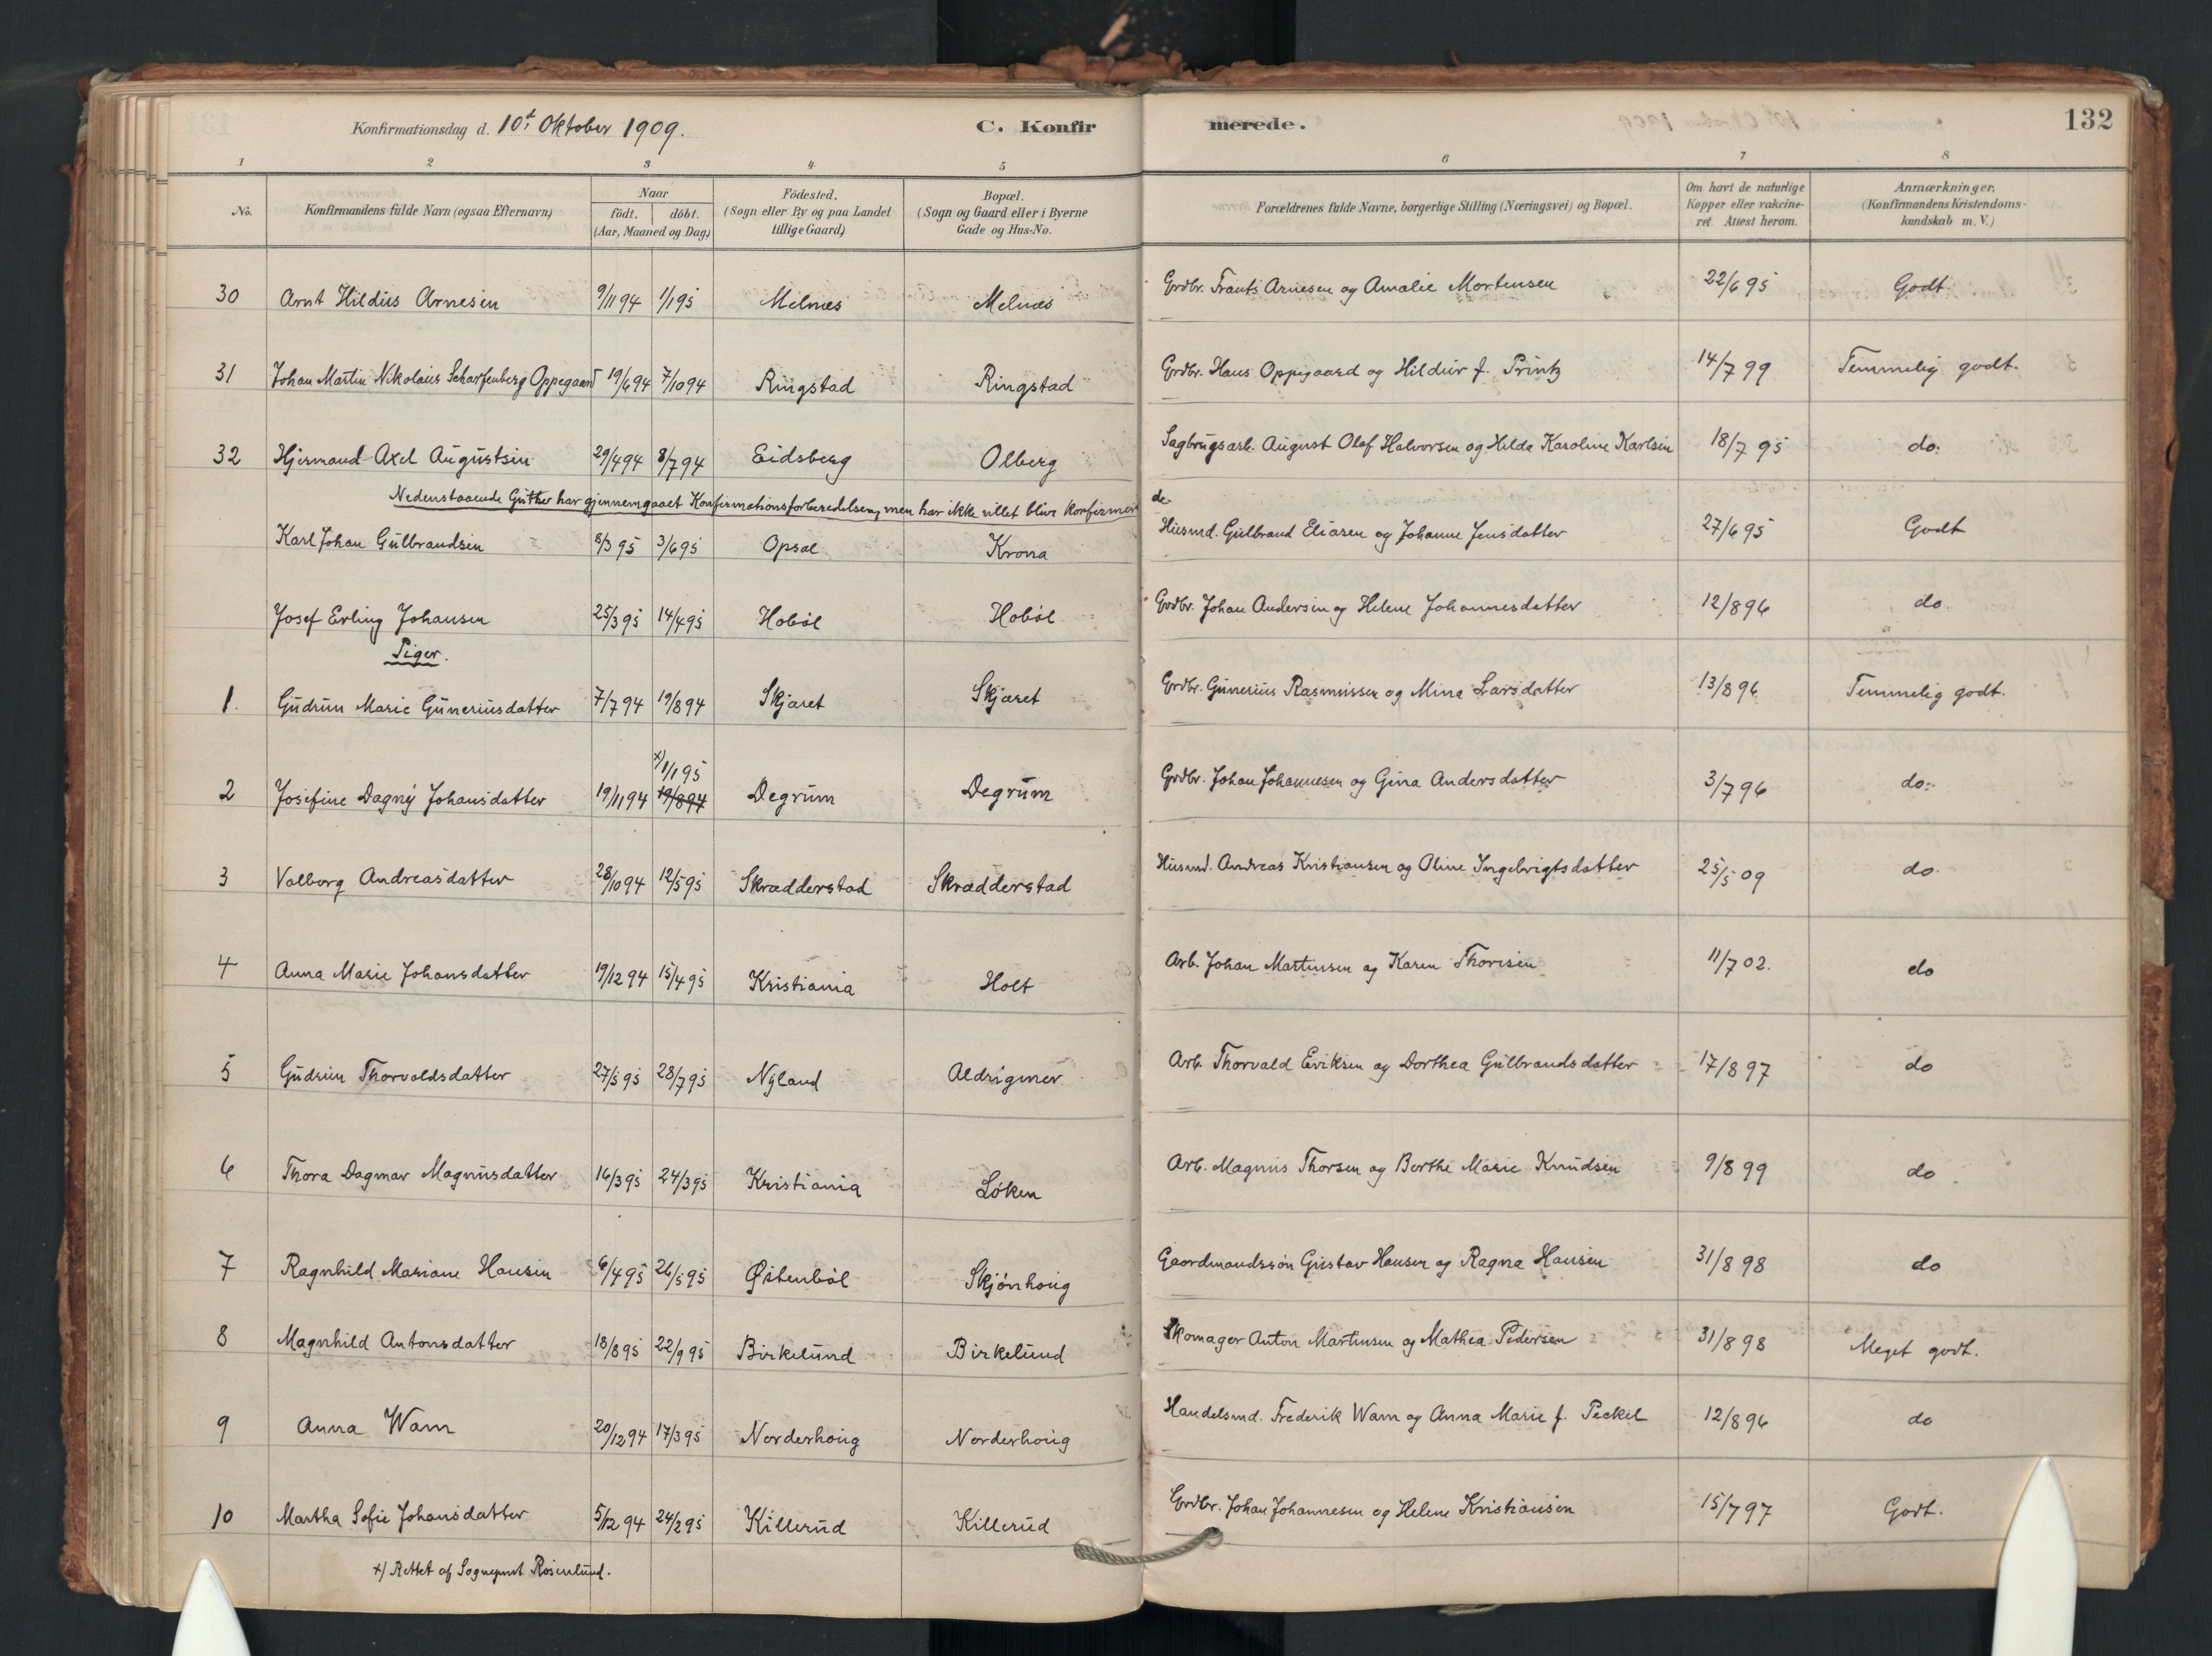 Konfirmationsdag d. 10de Oktober 1909. C. Konfirmerede. 132
1 2 3 4 5 6 7 8
No. Konfirmandens fulde Navn (ogsaa Efternavn) Naar födt. döbt. (Aar, Maaned og Dag) Födested. (Sogn eller By og paa Landet tillige Gaard) Bopæl. (Sogn og Gaard eller i Byerne Gade og Hus-No. Forældrenes fulde Navne, borgerlige Stilling (Næringsvei) og Bopæl. Om havt de naturlige Kopper eller vakcineret. Attest herom. Anmærkninger. (Konfirmandens Kristendomskundskab m. V.)
30 Arnt Hildius Arnesen 9/11 94 1/1 95 Melnæs Melnæs Grdbr. Frants Arnesen og Amalie Mortensen 22/6 95 Godt
31 Johan Martin Nikolaus Scharfenberg Oppegaard 19/6 94 7/10 94 Ringstad Ringstad Grdbr. Hans Oppegaard og Hildur f. Printz 14/7 99 Temmelig godt.
32 Hjermand Axel Augustsen 29/4 94 8/7 94 Eidsberg Olberg Sagbrugsarb. August Olaf Halvorsen og Hilda Karoline Karlsen 18/7 95 do.
Nedenstaaende Gutter har gjennemgaaet Konfirmationsforberedelsen, men har ikke villet blive konfirmerede.
Karl Johan Gulbrandsen 8/3 95 3/6 95 Opsal Krona Husmd. Gulbrand Eliasen og Johanne Jensdatter 27/6 95 Godt
Josef Erling Johansen 25/3 95 14/4 95 Hoböl Hoböl Grdbr. Johan Andersen og Helene Johannesdatter 12/8 96 do.
Piger.
1. Gudrun Marie Guneriusdatter 7/7 94 19/8 94 Skjæret Skjæret Grdbr. Gunerius Rasmussen og Mina Larsdatter 13/8 96 Temmelig godt.
x) 1/1 95
2 Josefine Dagny Johansdatter 19/11 94 19/8 94 Degrum Degrum Grdbr. Johan Johannesen og Gina Andersdatter 3/7 96 do.
3 Valborg Andreasdatter 28/10 94 12/5 95 Skrædderstad Skrædderstad Husmd. Andreas Kristiansen og Oline Ingebrigtsdatter 25/5 09 do.
4 Anna Marie Johansdatter 19/12 94 15/4 95 Kristiania Holt Arb. Johan Martinsen og Karen Thorisen 11/7 02. do
5 Gudrun Thorvaldsdatter 27/5 95 28/7 95 Nyland Aldrigmer Arb. Thorvald Eriksen og Dorthea Gulbrandsdatter 17/8 97 do
6 Thora Dagmar Magnusdatter 16/3 95 24/3 95 Kristiania Löken Arb. Magnus Thorsen og Berthe Marie Knudsen 9/8 99 do
7 Ragnhild Mariane Hansen 6/4 95 26/5 95 Østenböl Skjönhoug Gaardmandssön Gustav Hansen og Ragna Hansen 31/8 98 do
8 Magnhild Antonsdatter 18/8 95 22/9 95 Birkelund Birkelund Skomager Anton Martinsen og Mathea Pedersen 31/8 98 Meget godt.
9 Anna Wam 20/12 94 17/3 95 Norderhoug Norderhoug Handelsmd. Frederik Wam og Anna Marie f. Peckel 12/8 96 do
10 Martha Sofie Johansdatter 5/12 94 24/2 95 Killerud Killerud Grdbr. Johan Johannesen og Helene Kristiansen 15/7 97 Godt.
x) Rettet af Sogneprest Rosenlund.